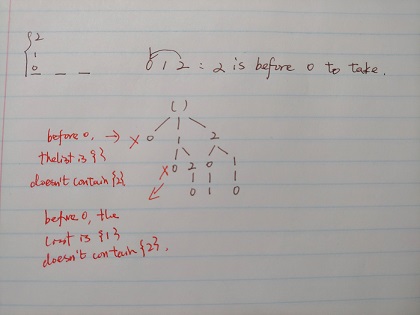 2
1
0 _ _ _
0 1 2 : 2 is before 0 to take.
( )
before 0, → x 0 1 2
the list is {}
doesn't contain {2}
x 0 2 0 1
0 1 0
before 0, the
list is {1}
doesn't contain {2}.